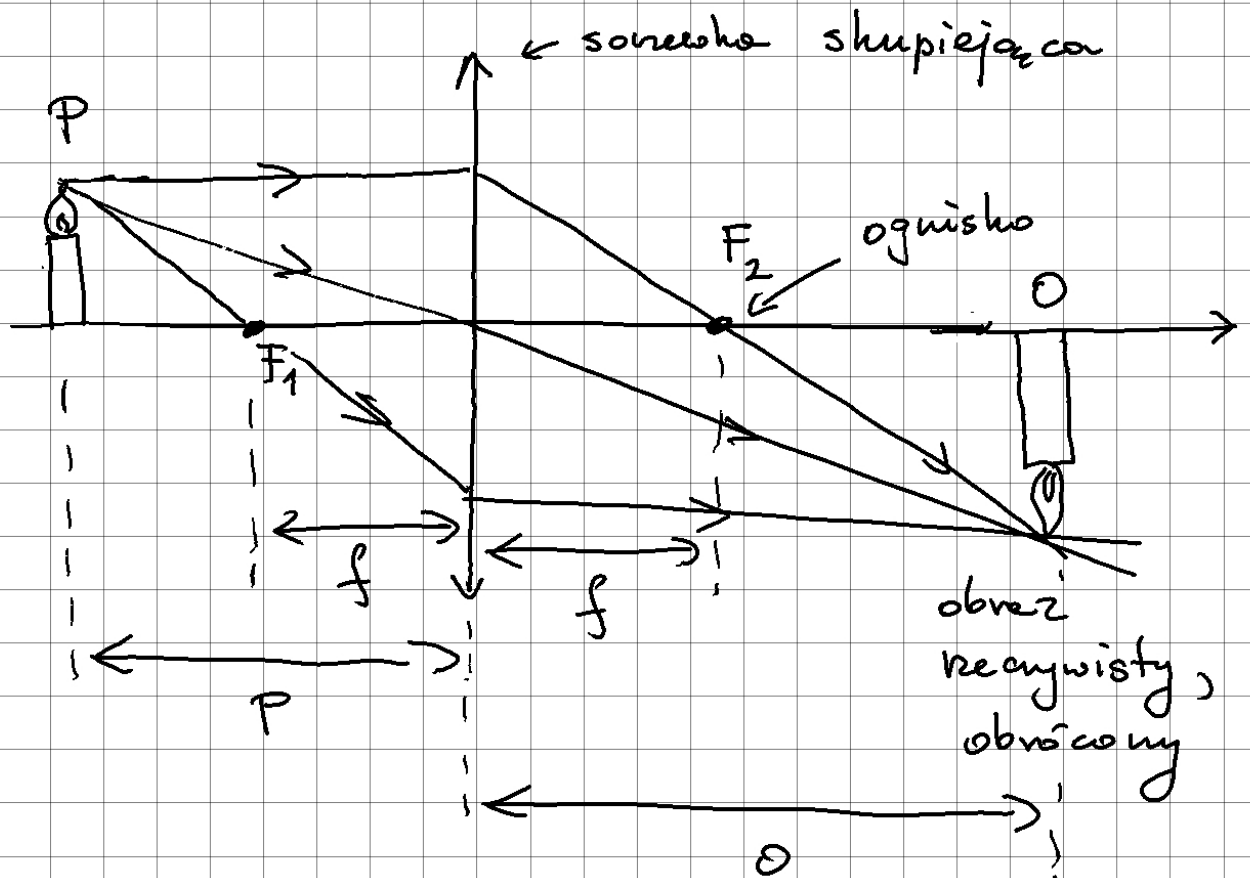 soczewka skupiająca
P
F2
ognisko
O
F1
f
f
p
obraz
rzeczywisty,
obrócony
o